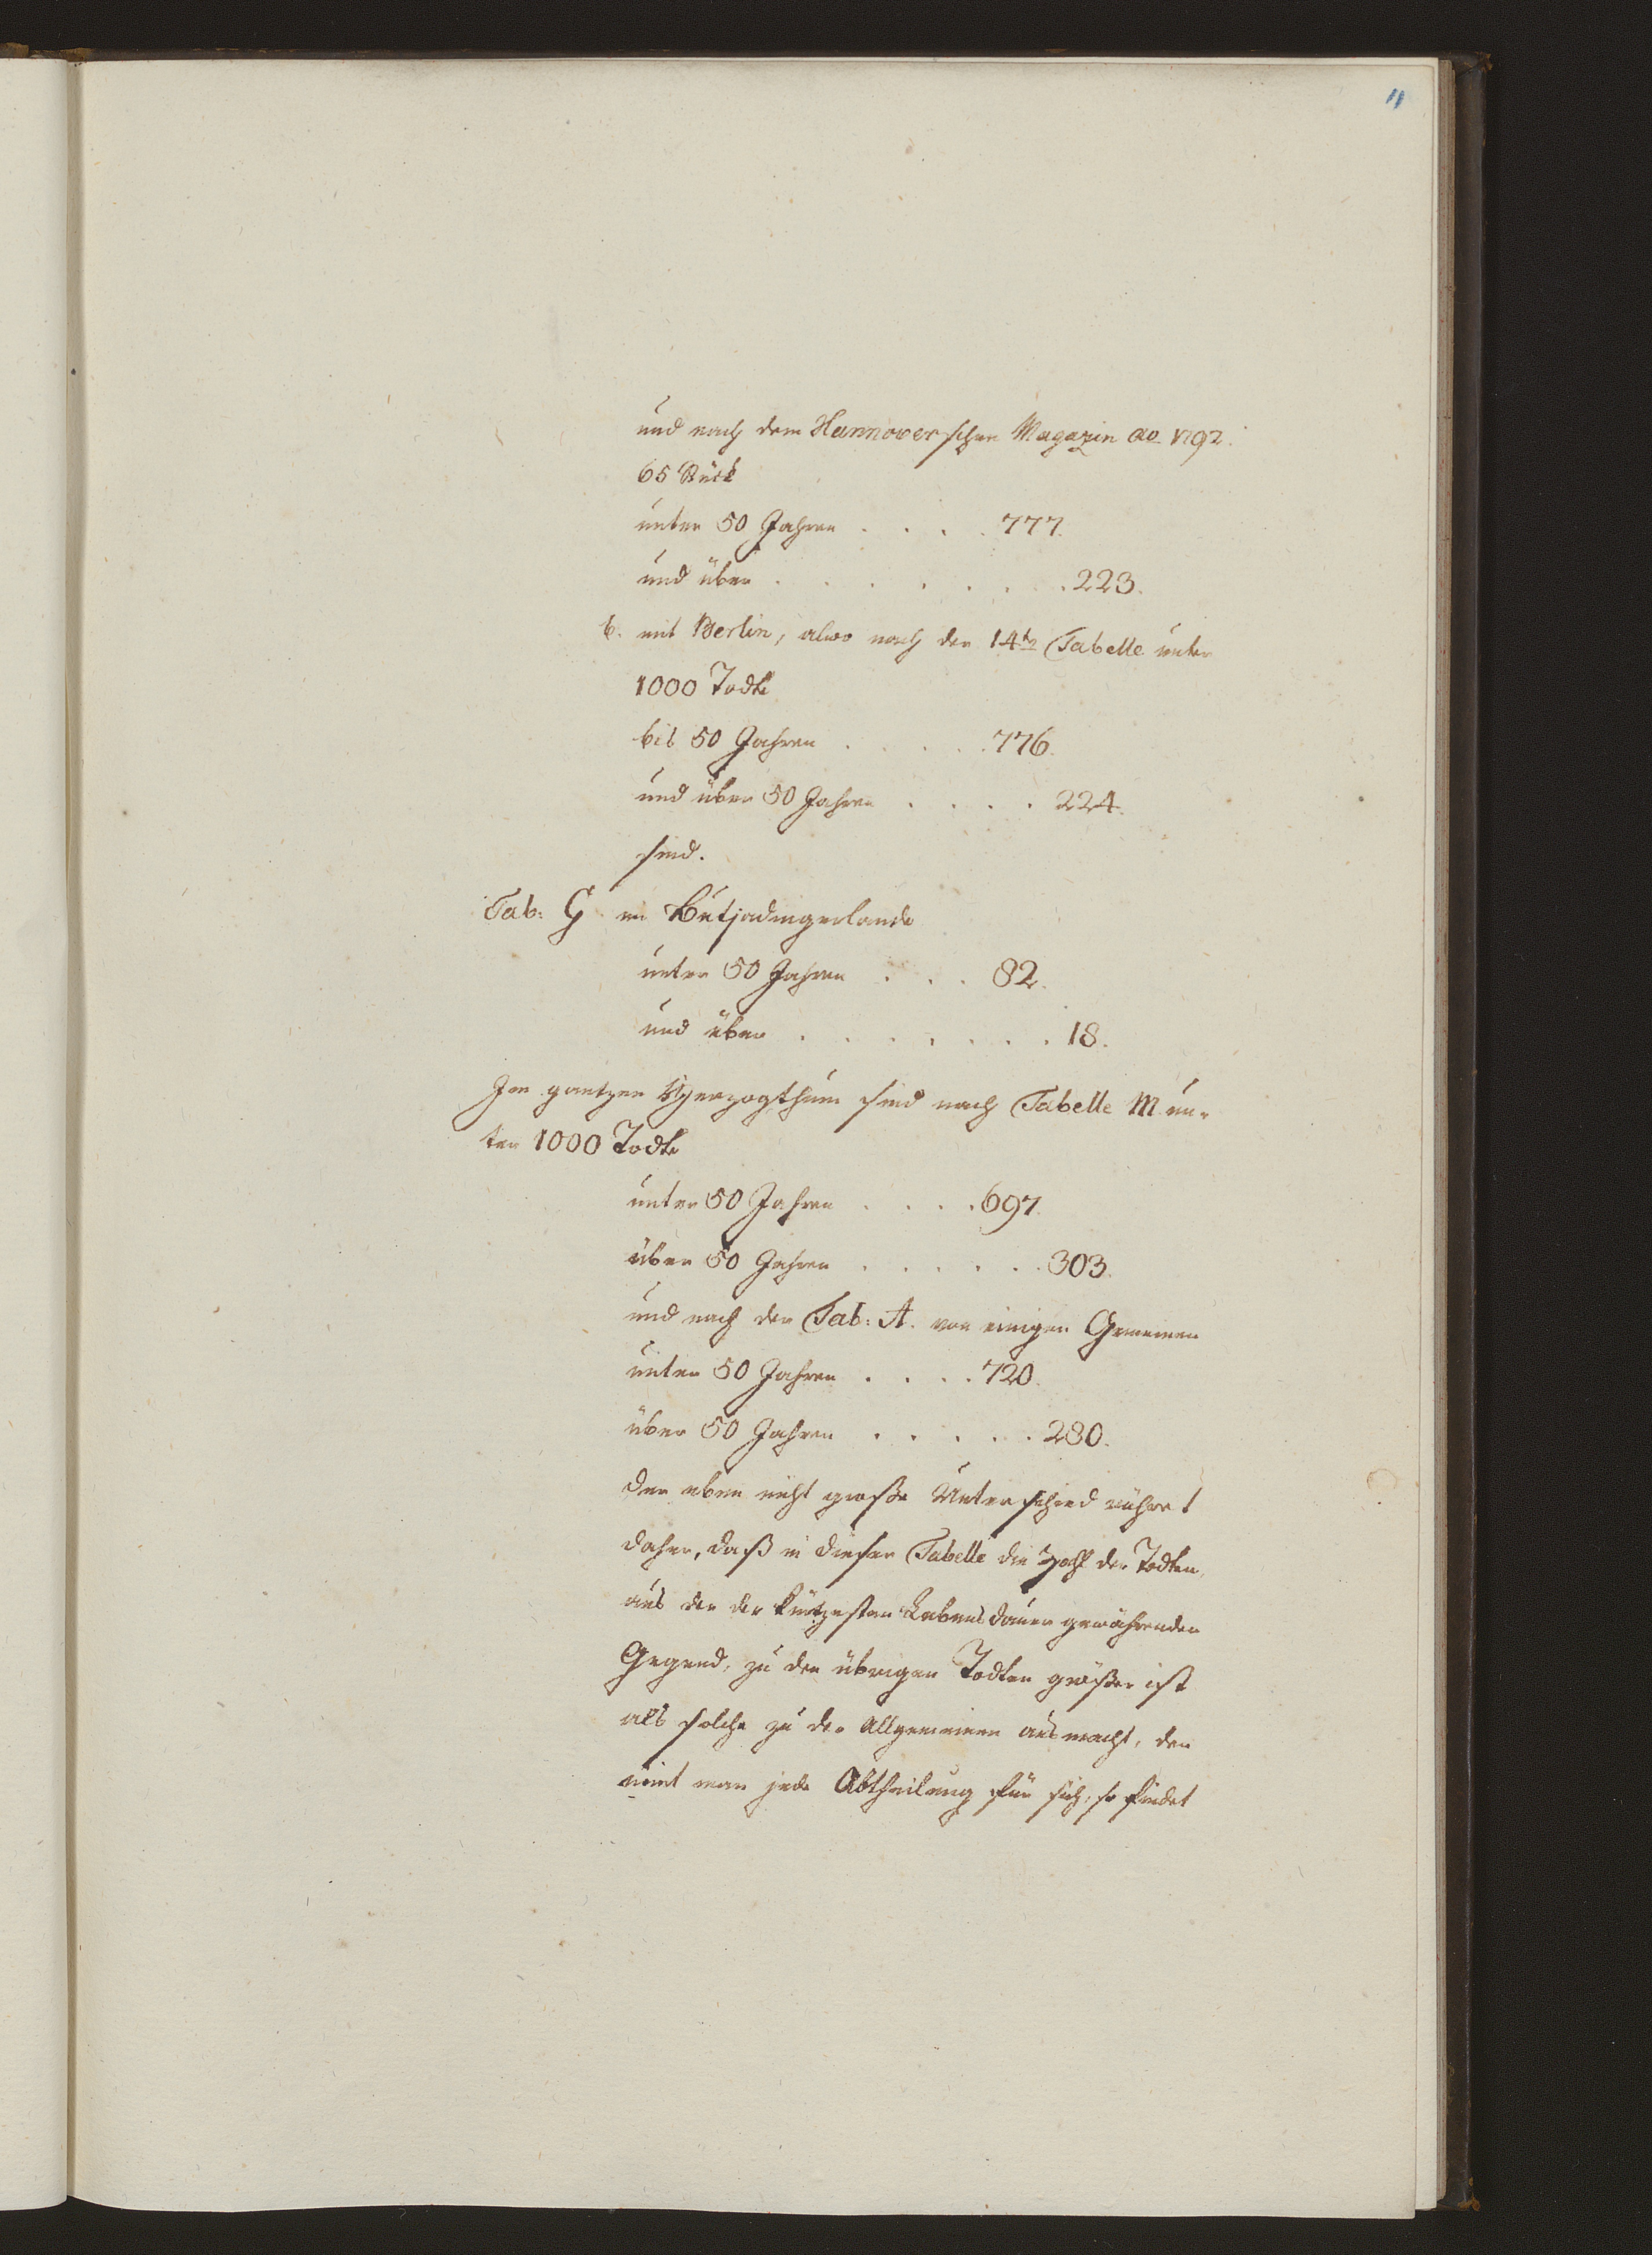 11
und nach dem Hannoverschen Magazin ao 1792.
65 Stück
unter 50 Jahren . . . . 777.
und über . . . . . . . 223.
b. mit Berlin, alwo nach der 14ten Tabelle unter
1000 Todte
bis 50 Jahren . . . . . 776.
und über 50 Jahren . . . . 224.
sind.
Tab: G im Butjadingerlande
unter 50 Jahren . . . 82.
und über . . . . . . . 18.
Im gantzen Herzogthum sind nach Tabelle M un-
ter 1000 Todte
unter 50 Jahren . . . . 697.
über 50 Jahren . . . . . . 303.
und nach der Tab: A. von einigen Gemeinen
unter 50 Jahren . . . . 720.
über 50 Jahren . . . . . 280.
Der eben nicht große Unterschied rühret
daher, daß in dieser Tabelle die Zahl der Todten,
aus der der kürtzesten Lebensdauer gewährenden
Gegend, zu den übrigen Todten größer ist
als solche zu der Allgemeinen ausmacht, den
nimt man jede Abtheilung für sich, so findet